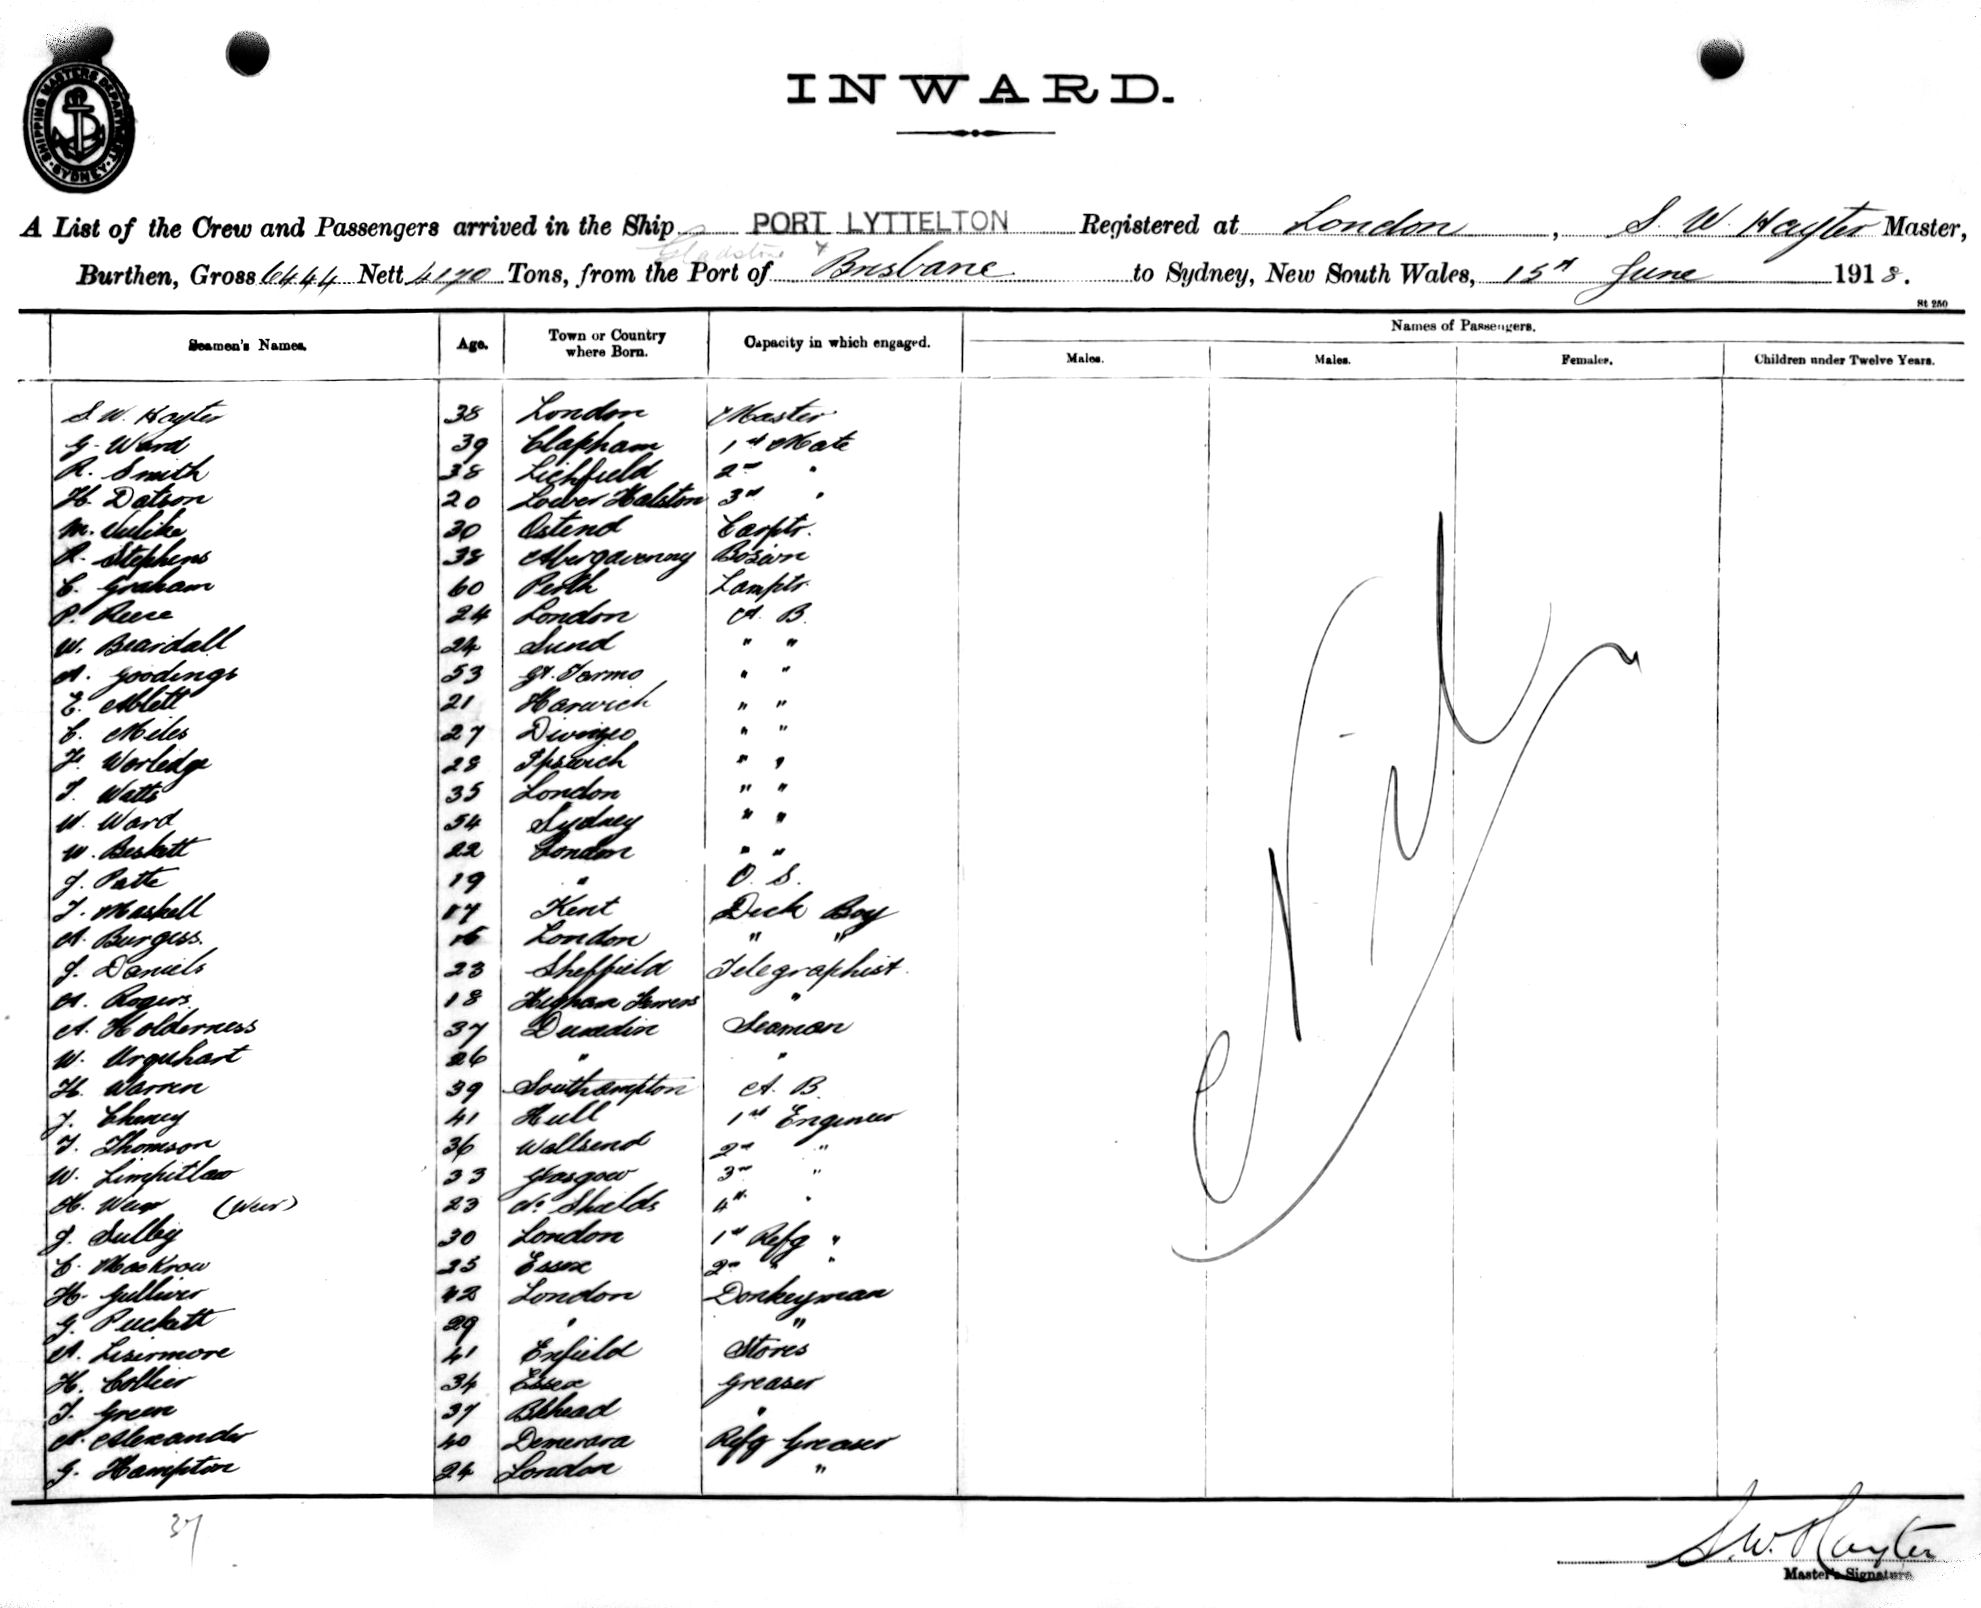 SHIPPING MASTERS DEPARTMENT SYDNEY
INWARD.
A List of the Crew and Passengers arrived in the Ship PORT LYTTELTON Registered at London, S. W. Hayter Master,
Gladstone &
Burthen, Gross 6444 Nett 4170 Tons, from the Port of Brisbane to Sydney, New South Wales, 15th June 1918.
St 250
Seamen's Names. Age. Town or Country where Born. Capacity in which engaged. Names of Passengers.
Males. Males. Females. Children under Twelve Years.
S W. Hayter 38 London Master
G. Ward 39 Clapham 1st Mate
R. Smith 38 Lichfield 2nd "
H. Datson 20 Lower Halston 3rd "
M. 30 Ostend Carptr.
R. Stephens 38 Abergavenny Bosun
C. Graham 60 Perth Lamptr.
P. Reese 24 London A. B.
W. Beardall 24 Sund " "
A. Goodings 53 Gt. Yarmo " "
E. Ablett 21 Harwich " "
C. Miles 27 " "
F. Worledge 28 Ipswich " "
T. Watts 35 London " "
W. Ward 54 Sydney " "
W. Beskett 22 London " "
J. Patte 19 " O. S.
T. Maskell 17 Kent Deck Boy
A. Burgess. 16 London " "
J. Daniels 23 Sheffield Telegraphist.
A. Rogers. 18 Higham Ferrers "
A. Holderness 37 Dunedin Seaman
W. Urquhart 26 " "
H. Warren 39 Southampton A. B.
J. Cheney 41 Hull 1st Engineer
T. Thomson 36 Wallsend 2nd "
W. Limpitlaw 33 Glasgow 3rd "
H. Weir (Weir) 23 No. Shields 4th "
J. Sulley 30 London 1st Refg "
C. Mackrow 35 Essex 2nd " "
H. Gulliver 42 London Donkeyman
G. Puckett 29 " "
A. Lisermore 41 Enfield Stores
H. Collier 34 Essex Greaser
T. Green 37 Bkhead "
A. Alexander 40 Demerara Refg Greaser
G. Hampton 24 London "
Nil
37
S. W. Hayter
Master's Signature